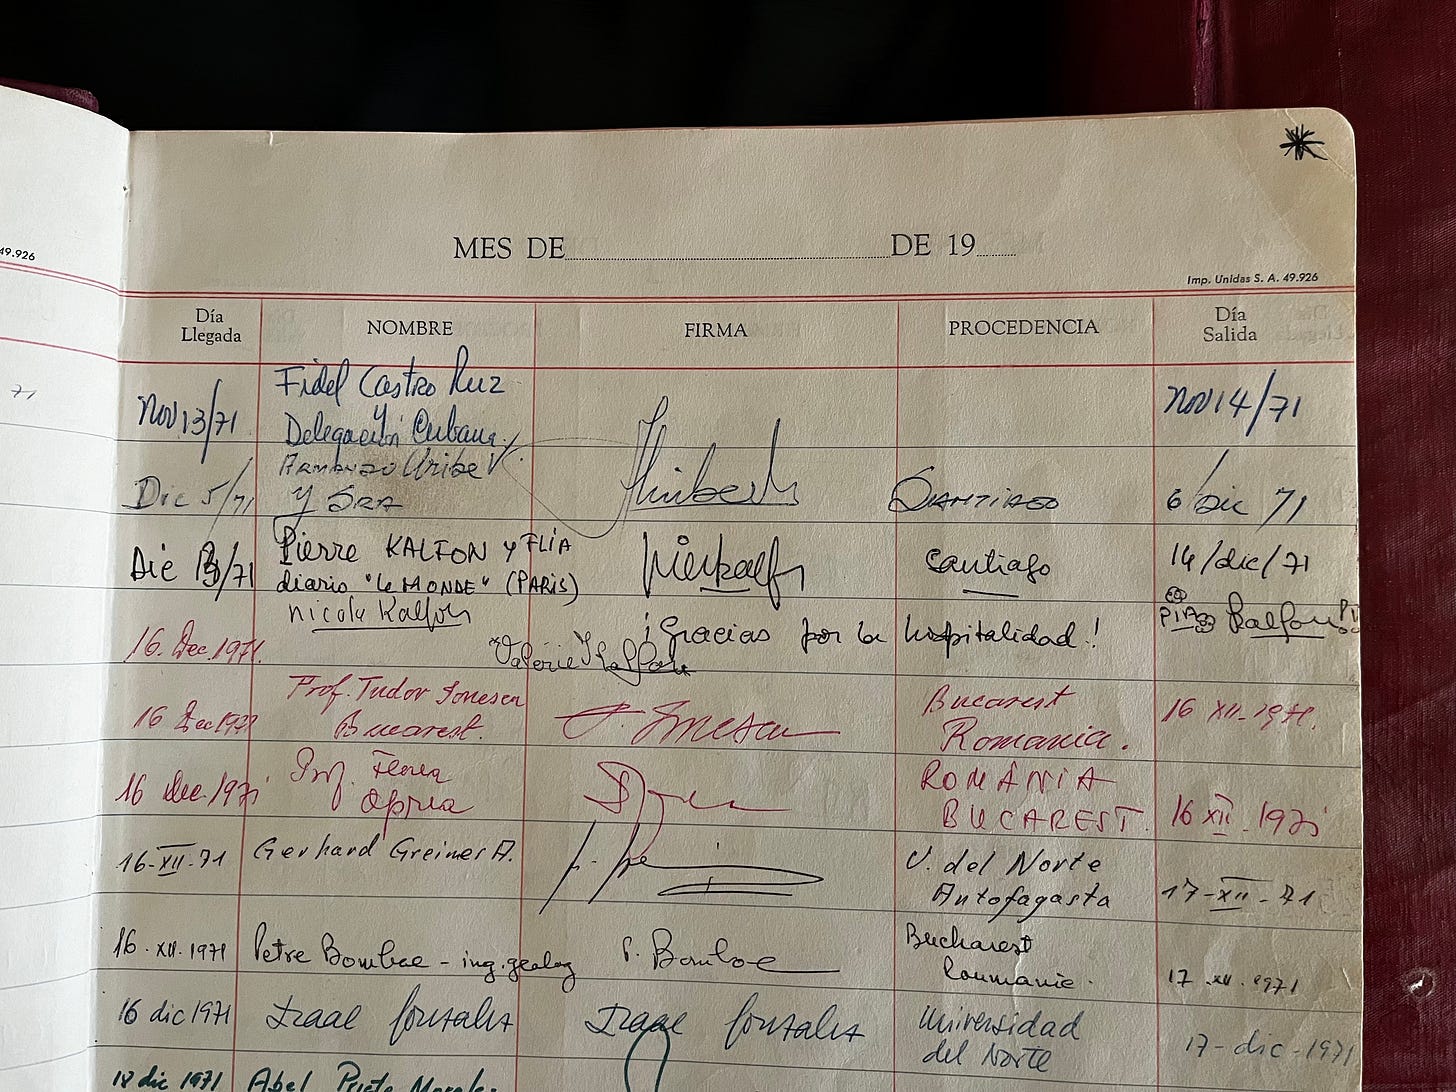 49.926
MES DE DE 19
Imp. Unidas S. A. 49.926
Día Llegada NOMBRE FIRMA PROCEDENCIA Día Salida
71
Nov 13/71 Fidel Castro Ruz Nov 14/71
y
Delegación Cubana
Dic 5/71 Armando Uribe Santiago 6/Dic 71
y Sra
Dic 13/71 Pierre KALFON y FLIA Santiago 14/dic/71
diario "Le MONDE" (PARIS)
Nicole Kalfon
¡Gracias por la hospitalidad! Pia Kalfon
16. Dec. 1971. Valérie Kalfon
16 Dec 1971 Prof. Tudor Ionescu T. Ionescu Bucarest 16 XII-1971.
Bucarest. Romania.
16 dec. 1971 Prof. Florea ROMÂNIA 16 XII. 1971
Oprea BUCAREST.
16-XII-71 Gerhard Greiner A. U. del Norte 17-XII-71
Antofagasta
16. XII. 1971 Petre Bomboe - ing. geolog P. Bomboe Bucharest 17 XII 1971
Roumanie.
16 dic 1971 Isaac Gonzalez Isaac Gonzalez Universidad 17-dic-1971
del Norte
18 dic 1971 Abel Prieto Morales